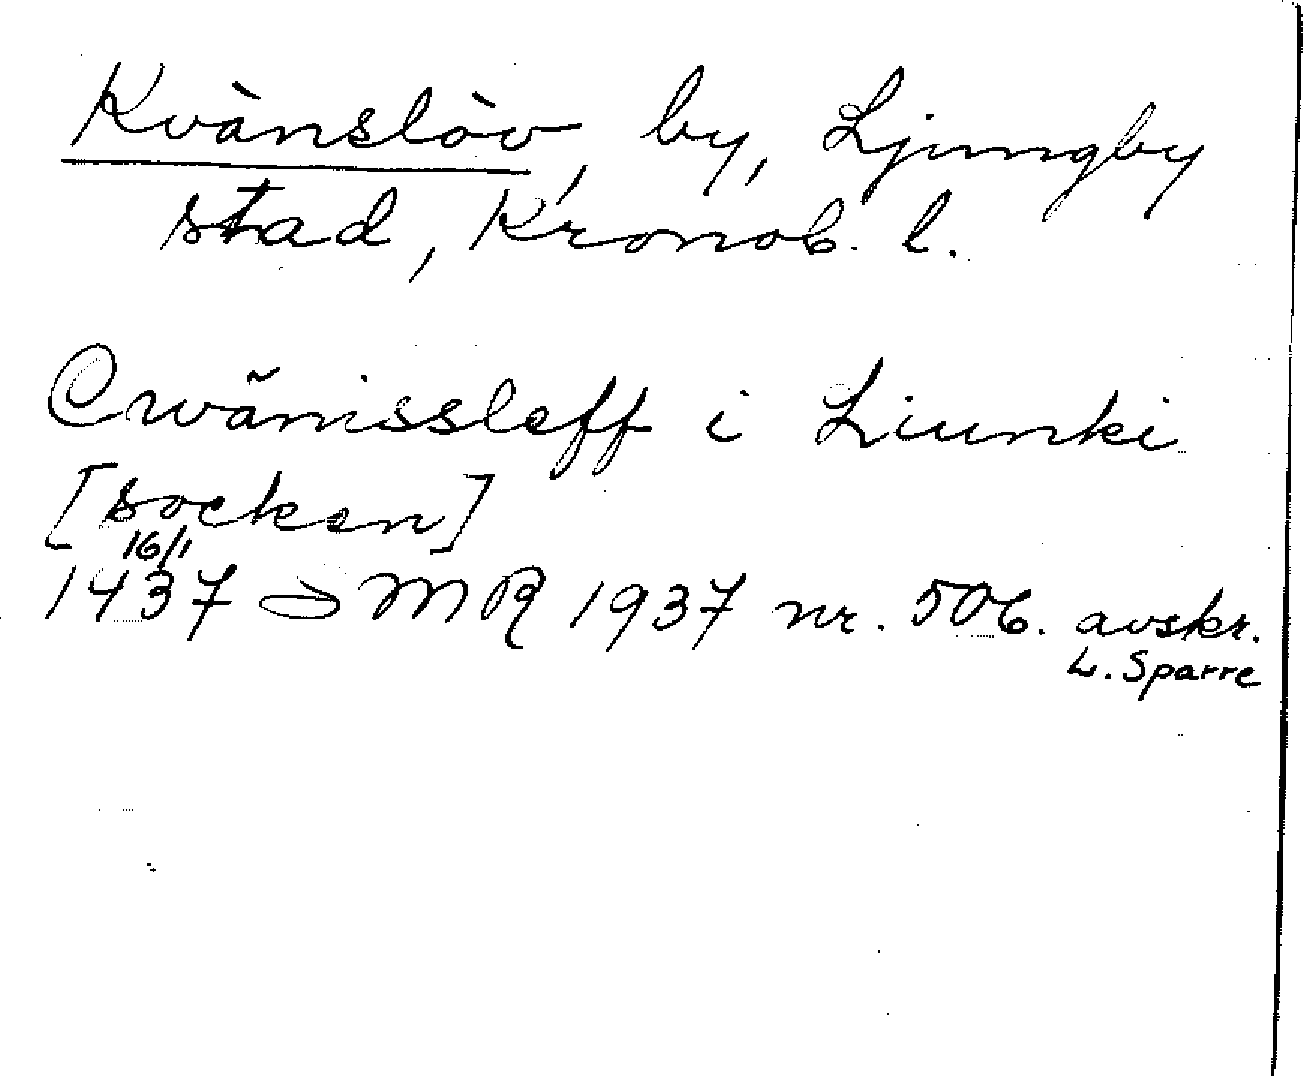 Kvänslöv, by, Ljungby
stad, Kronob. l.
Cwänissleff i Liunki
[socken]
16/1
1437 SMR 1937 nr. 506. avskr.
L. Sparre